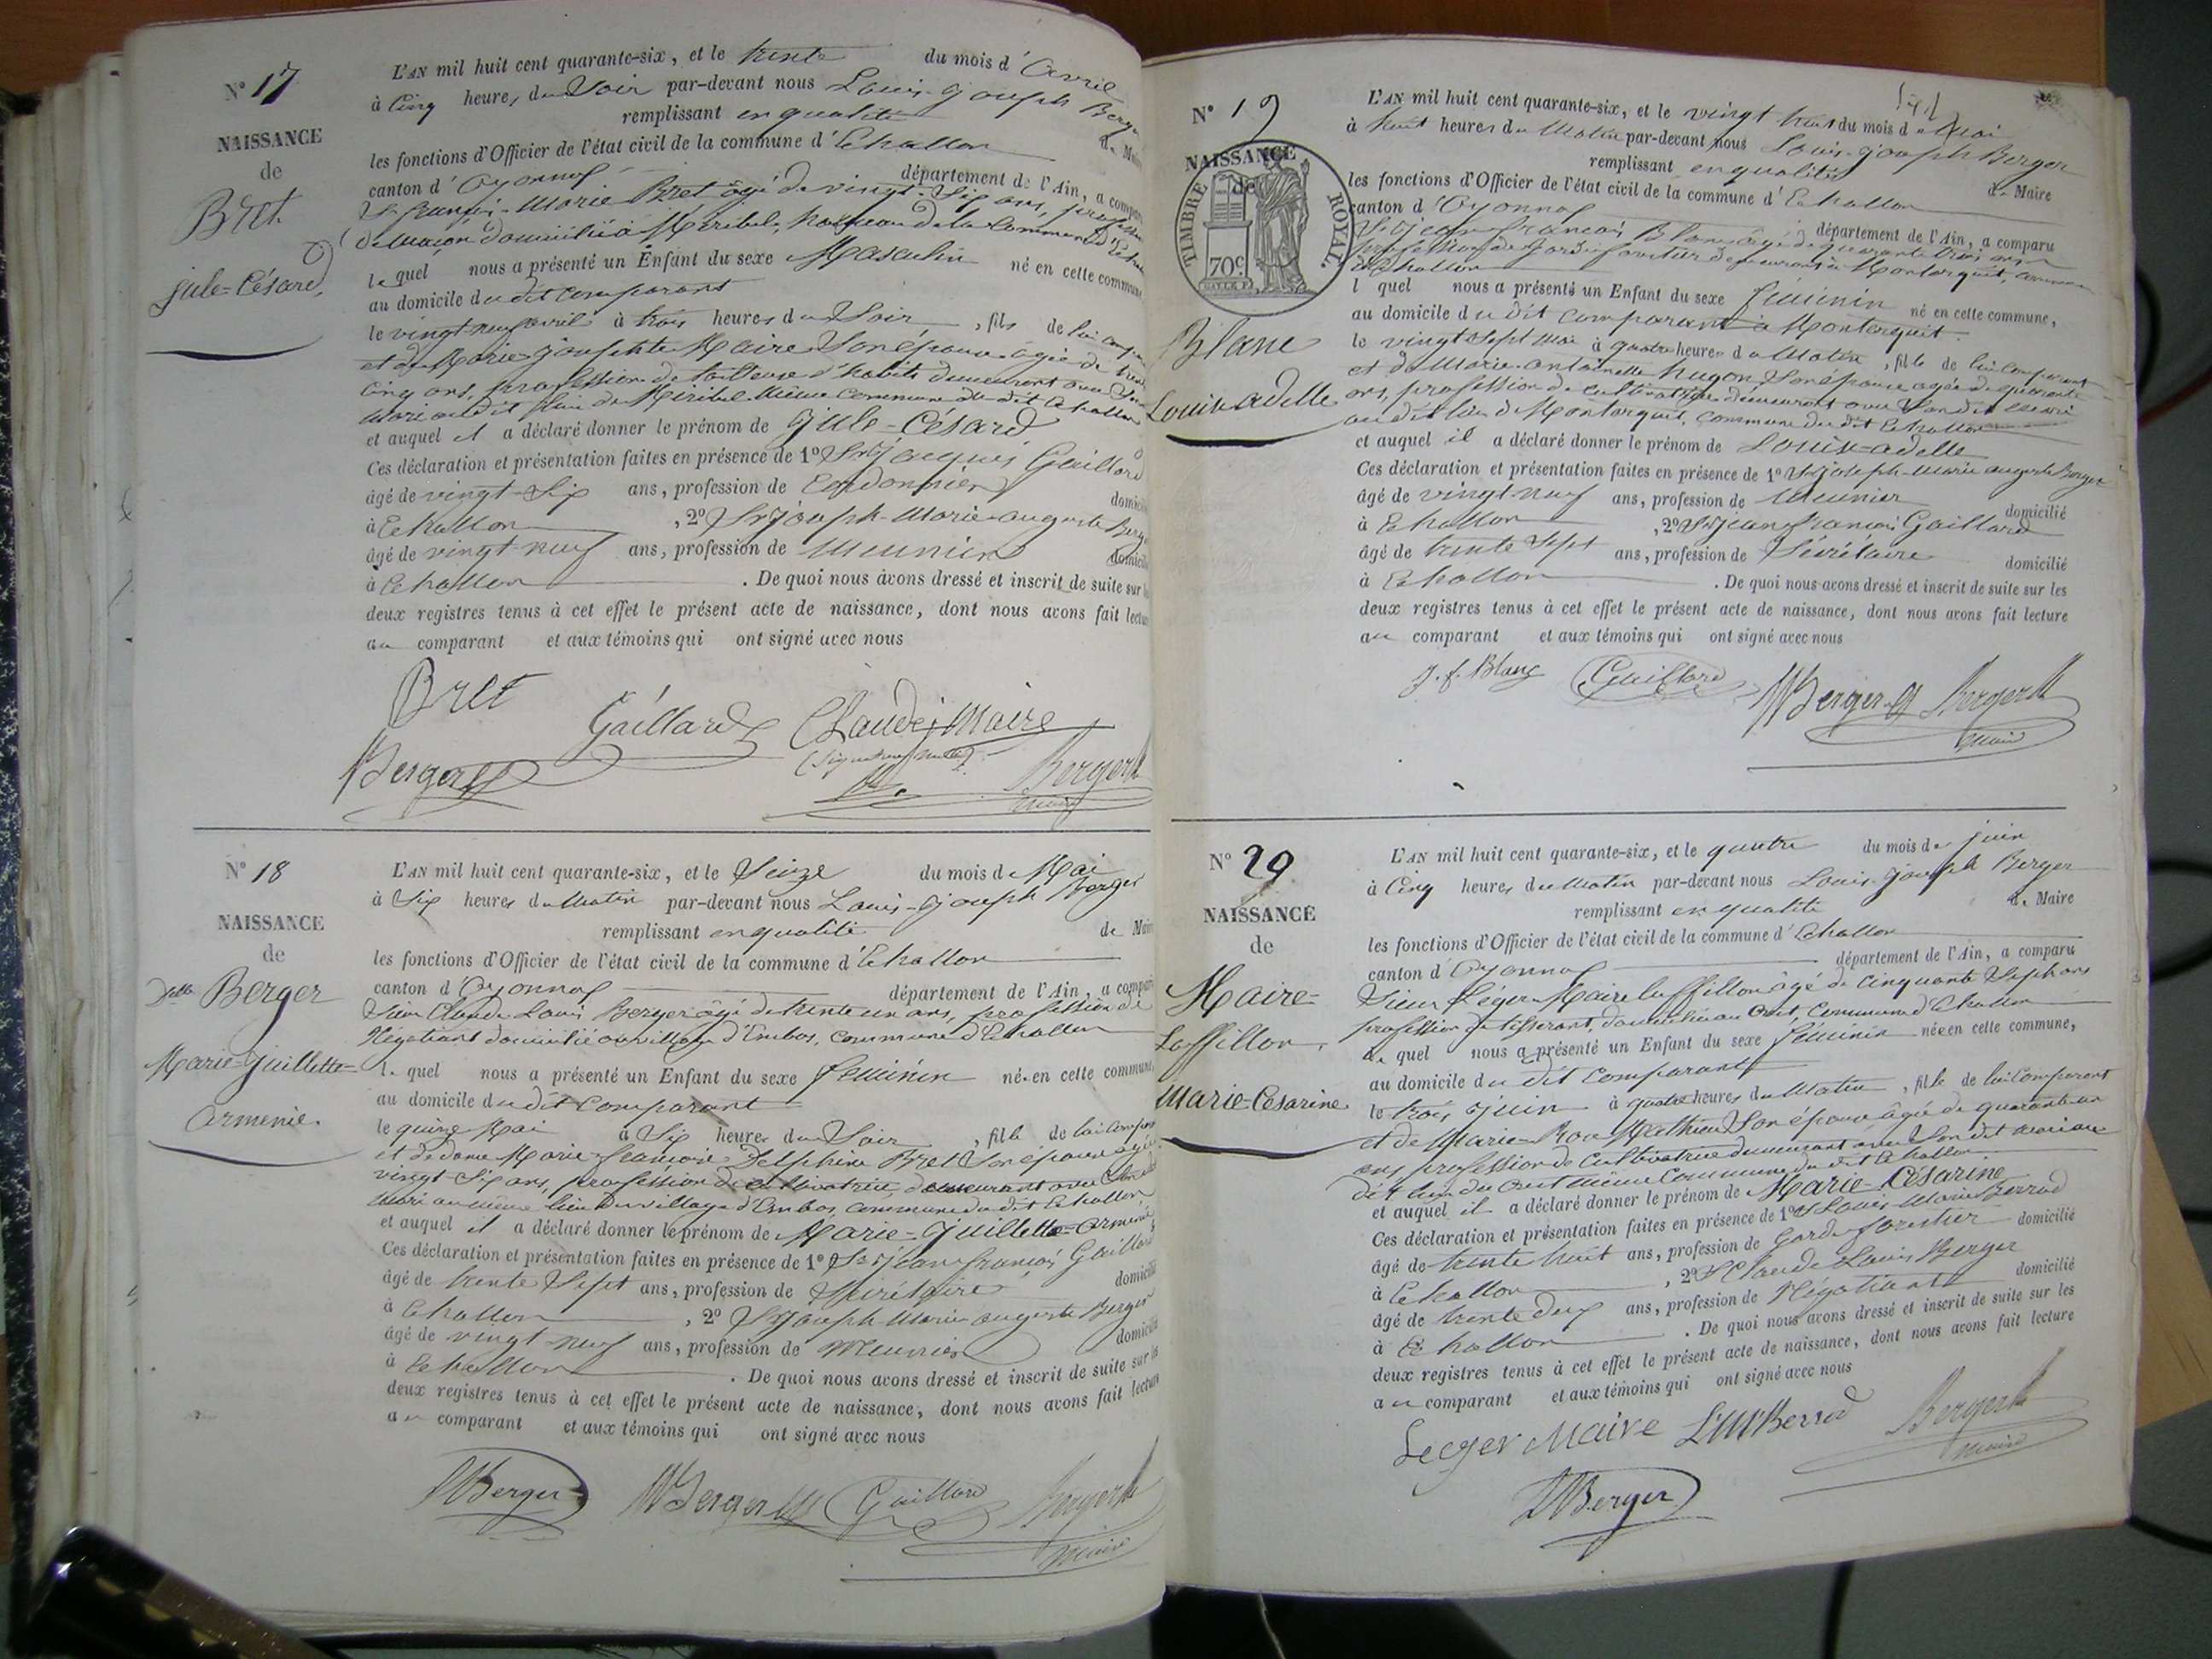 N° 17
NAISSANCE
de
Bret
jule-Césard,
L'AN mil huit cent quarante-six, et le trente du mois d'Avril
à Cinq heures du Soir par-devant nous Louis-joseph Berger
remplissant en qualité de Maire
les fonctions d'Officier de l'état civil de la commune d'Echallon
canton d'Oyonnax département de l'Ain, a comparu
Sr françois-Marie Bret âgé de vingt-Six ans, profession
de Maçon domicilié à Meribel, hameau de la Commune d'Echallon
lequel nous a présenté un Enfant du sexe Masculin né en cette commune
au domicile du dit Comparant
le vingt neuf avril à trois heures du Soir, fils de lui Comparant
et de Marie-josephte Maire Son épouse âgée de trente
Cinq ans, profession de tailleuse d'habits demeurant avec Son
Mari au dit lieu de Meribel Même Commune du dit Echallon
et auquel il a déclaré donner le prénom de Jule-Césard
Ces déclaration et présentation faites en présence de 1° Sr Jacques Gaillard
âgé de vingt-Six ans, profession de Cordonnier domicilié
à Echallon, 2° Sr Joseph-Marie-auguste Berger
âgé de vingt-neuf ans, profession de Meunier domicilié
à Echallon. De quoi nous avons dressé et inscrit de suite sur les
deux registres tenus à cet effet le présent acte de naissance, dont nous avons fait lecture
au comparant et aux témoins qui ont signé avec nous
Bret
Gaillard Claude j Maire
Berger
(Signature nulle)
Berger
Maire
N° 18
NAISSANCE
de
Delle Berger
Marie-Juillette-
Armenie.
L'AN mil huit cent quarante-six, et le Seize du mois de Mai
à Six heures du Matin par-devant nous Louis-joseph Berger
remplissant en qualité de Maire
les fonctions d'Officier de l'état civil de la commune d'Echallon
canton d'Oyonnax département de l'Ain, a comparu
Sieur Claude Louis Berger âgé de trente un ans, profession de
Négotiant domicilié au village d'Embos, Commune d'Echallon
lequel nous a présenté un Enfant du sexe feminin née en cette commune,
au domicile du dit Comparant
le quinze Mai à Six heures du Soir, fille de lui Comparant
et de dame Marie françoise Delphine Bret Son épouse agée
vingt Six ans, profession de Cultivatrice, demeurant avec Son dit
Mari au même lieu du village d'Embos, Commune du dit Echallon
et auquel il a déclaré donner le prénom de Marie-Juillette-Armenie
Ces déclaration et présentation faites en présence de 1° Sr Jean françois Gaillard
âgé de trente Sept ans, profession de Sécrétaire domicilié
à Echallon, 2° Sr Joseph Marie auguste Berger
âgé de vingt-neuf ans, profession de Meunier domicilié
à Echallon. De quoi nous avons dressé et inscrit de suite sur les
deux registres tenus à cet effet le présent acte de naissance, dont nous avons fait lecture
au comparant et aux témoins qui ont signé avec nous
Berger Berger Gaillard Berger
Maire
N° 19
NAISSANCE
de
TIMBRE ROYAL
70c
Blanc
Louise adelle
L'AN mil huit cent quarante-six, et le vingt huit du mois de Mai
à huit heures du Matin par-devant nous Louis-joseph Berger
remplissant en qualité de Maire
les fonctions d'Officier de l'état civil de la commune d'Echallon
canton d'Oyonnax département de l'Ain, a comparu
Sr Jean françois Blanc âgé de quarante trois ans
profession de garde forestier demeurant à Montarquit, commune
d'Echallon
lequel nous a présenté un Enfant du sexe féminin né en cette commune,
au domicile du dit Comparant à Montarquit.
le vingt Sept Mai à quatre heures du Matin, fille de lui Comparant
et de Marie-antoinette hugon Son épouse agée de quarante
ans, profession de Cultivatrice demeurant avec Son dit Mari
au dit lieu de Montarquit, Commune du dit Echallon
et auquel il a déclaré donner le prénom de Louise-adelle
Ces déclaration et présentation faites en présence de 1° Sr joseph-Marie auguste Berger
âgé de vingt-neuf ans, profession de Meunier domicilié
à Echallon, 2° Sr Jean françois Gaillard
âgé de trente Sept ans, profession de Sécrétaire domicilié
à Echallon. De quoi nous avons dressé et inscrit de suite sur les
deux registres tenus à cet effet le présent acte de naissance, dont nous avons fait lecture
au comparant et aux témoins qui ont signé avec nous
J. f. Blanc Gaillard Berger Berger
Maire
N° 20
NAISSANCE
de
Maire-
Laffillon,
Marie-Césarine
L'AN mil huit cent quarante-six, et le quatre du mois de juin
à Cinq heures du Matin par-devant nous Louis-joseph Berger
remplissant en qualité de Maire
les fonctions d'Officier de l'état civil de la commune d'Echallon
canton d'Oyonnax département de l'Ain, a comparu
Sieur Léger Maire laffillon âgé de Cinquante Sept ans
profession de tisserant, domicilié au Cret, Commune d'Echallon
lequel nous a présenté un Enfant du sexe féminin née en cette commune,
au domicile du dit Comparant
le trois juin à quatre heures du Matin, fille de lui Comparant
et de Marie-Rose Mathieu Son épouse âgée de quarante un
ans, profession de Cultivatrice demeurant avec Son dit mari au
dit lieu du Cret même Commune du dit Echallon
et auquel il a déclaré donner le prénom de Marie-Césarine
Ces déclaration et présentation faites en présence de 1° Sr Louis Marie Berrod
âgé de trente huit ans, profession de Garde forestier domicilié
à Echallon, 2° Sr Claude Louis Berger
âgé de trente deux ans, profession de Négotiant domicilié
à Echallon. De quoi nous avons dressé et inscrit de suite sur les
deux registres tenus à cet effet le présent acte de naissance, dont nous avons fait lecture
au comparant et aux témoins qui ont signé avec nous
Leger Maire L M Berrod Berger
Maire
Berger